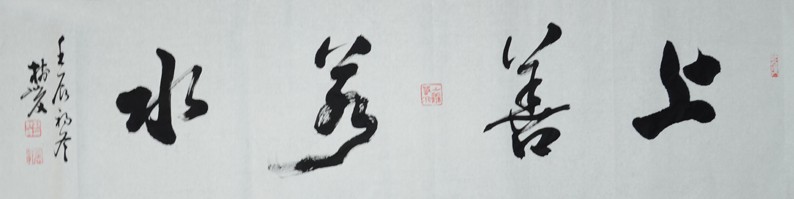 上善若水
壬辰初冬